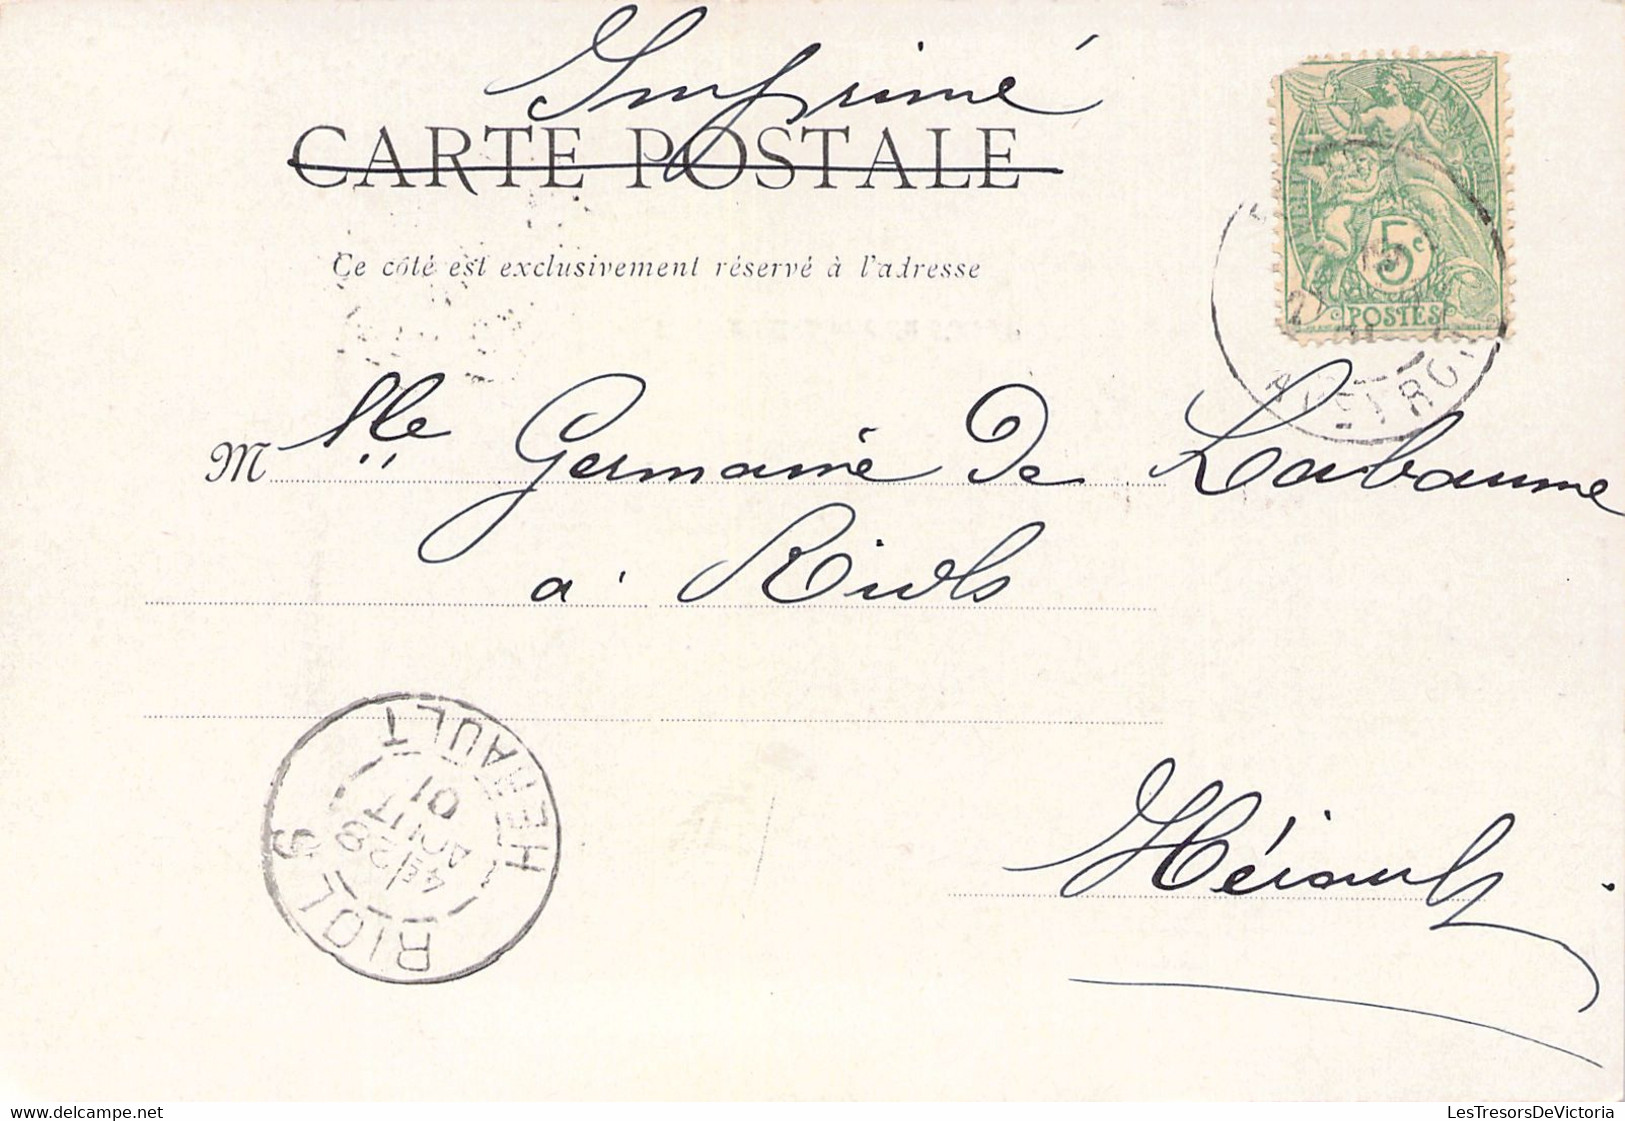 Imprimé
CARTE POSTALE
Ce côté est exclusivement réservé à l'adresse
5c
POSTES
Mlle Germaine De Labaume
à Riols
Hérault
RIOLS
HERAULT
4E/28
AOUT
01
delcampe.net
LesTresorsDeVictoria